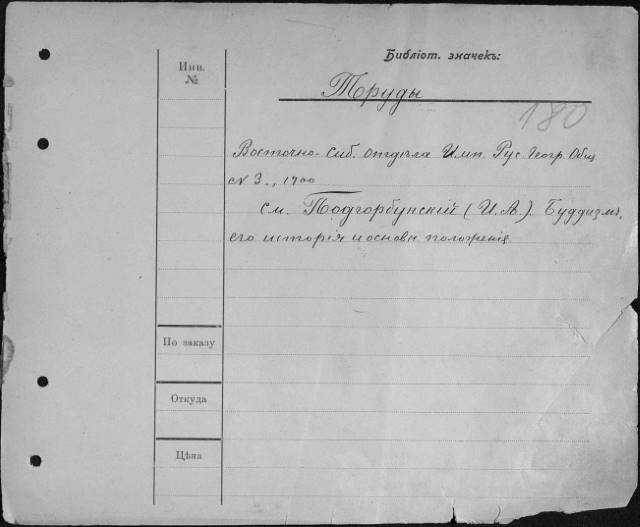 Библіот. значекъ:
Инв.
№
Труды
180
Восточно-Сиб. Отдѣла Имп. Рус. Геогр. Общ.
№ 3., 1900
см. Подгорбунскій (И. А.). Буддизмъ,
его исторія и основн положенія
По заказу
Откуда
Цѣна